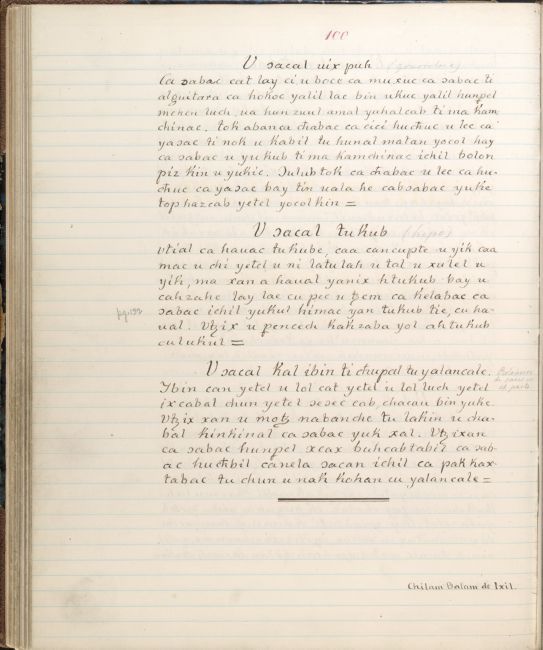 100
U sacal uix puh
Ca sabac cat lay ci u bocc ca muxuc ca sabac ti
alquitara ca hokoc yalil lac bin ukuc yalil hunpel
mehen luch, ua hun zuul amal yuhalcab ti ma kam
chinac. tok abanca chabac ca cici huchuc u lec ca
yasac ti nok u kabil tu hunal matan yocol hay
ca sabac u yukub ti ma kamchinac ichil bolon
piz kin u yukic. Sulubtok ca chabac u lec ca hu-
chuc ca yasac bay tin uala he cabsabac yuke
top hazcab yetel yocolkin =
U sacal tukub (hipo)
utial ca hauac tukube, caa cancupte u yik caa
mac u chi yetel u ni latulah u tal u xulel u
yik, ma xan a haual yanix h tukub bay u
cahzahe lay lac cu pec u tzem ca kelabac ca
sabac ichil yukul himac yan tukub tie, cu ha-
ual. Utzix u pencech kakzaba yol ah tukub
cu lukul =
pg. 192
U sacal kal ibin ti chupal tu yalancale.
Ybin can yetel u lol cat yetel u lol luch yetel
ix cabal chun yetel sesec cab, chacau bin yuke.
Utzix xan u motz nabanche tu lakin u cha-
bal kinkinal ca sabac yuk xal. Utzixan
ca sabac hunpel xeax buhcabtabil ca sab-
ac huchbil canela sacan ichil ca pakkax-
tabac tu chun u nak kohan cu yalancale =
Chilam Balam de Ixil.